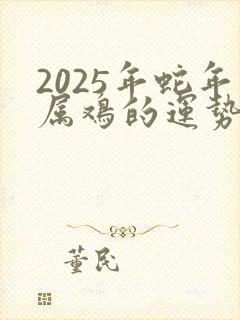 2025年蛇年
属鸡的運勢
董民